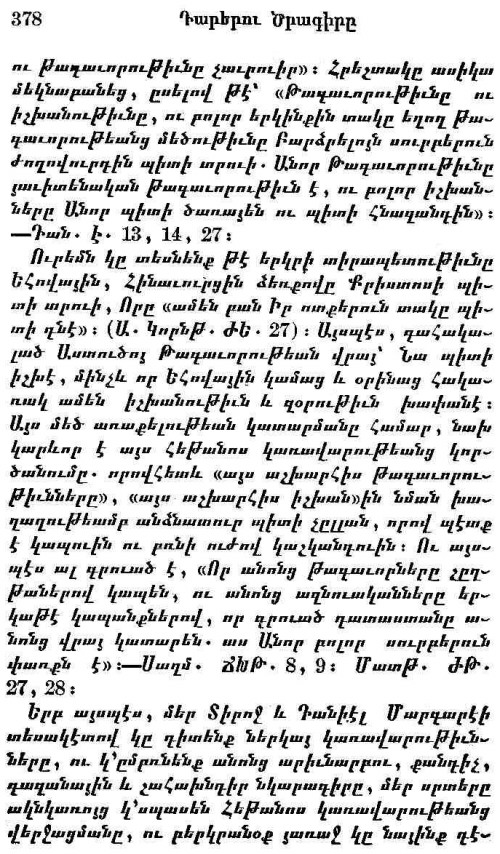 378 Դարերու Ծրագիրը
ու թագաւորութիւնը չաւրուիր»։ Հրեշտակը ասիկա
մեկնաբանեց, ըսելով թէ՝ «Թագաւորութիւնը ու
իշխանութիւնը, ու բոլոր երկինքին տակը եղող թա-
գաւորութեանց մեծութիւնը Բարձրելոյն սուրբերուն
ժողովուրդին պիտի տրուի. Անոր Թագաւորութիւնը
յաւիտենական թագաւորութիւն է, ու բոլոր իշխան-
ները Անոր պիտի ծառայեն ու պիտի հնազանդին»։
—Դան. է. 13, 14, 27։
Ուրեմն կը տեսնենք թէ երկրի տիրապետութիւնը
Եհովային, Հինաւուրցին ձեռքովը Քրիստոսի պի-
տի տրուի, Որը «ամեն բան Իր ոտքերուն տակը պի-
տի դնէ»։ (Ա. Կորնթ. ԺԵ. 27)։ Այսպէս, գահակա-
լած Աստուծոյ Թագաւորութեան վրայ՝ Նա պիտի
իշխէ, մինչև որ Եհովային կամաց և օրինաց հակա-
ռակ ամեն իշխանութիւն և զօրութիւն խափանէ։
Այս մեծ առաքելութեան կատարմանը համար, նախ
կարևոր է այս հեթանոս կառավարութեանց կոր-
ծանումը. որովհետև «այս աշխարհիս թագաւորու-
թիւնները», «այս աշխարհիս իշխան»ին նման խա-
ղաղութեամբ անձնատուր պիտի չըլլան, որով պէտք
է կապուին ու բռնի ուժով կաշկանդուին։ Ու այս-
պէս ալ գրուած է, «Որ անոնց թագաւորները շըղ-
թաներով կապեն, ու անոնց ազնուականները եր-
կաթէ կապանքներով, որ գրուած դատաստանը ա-
նոնց վրայ կատարեն. աս Անոր բոլոր սուրբերուն
փառքն է»։—Սաղմ. ՃԽԹ. 8, 9։ Մատթ. ԺԹ.
27, 28։
Երբ այսպէս, մեր Տիրոջ և Դանիէլ Մարգարէի
տեսակէտով կը դիտենք ներկայ կառավարութիւն-
ները, ու կ՚ըմբռնենք անոնց արիւնարբու, քանդիչ,
գազանային և շահախնդիր նկարագիրը, մեր սրտերը
ակնկառոյց կ՚սպասեն Հեթանոս կառավարութեանց
վերջացմանը, ու բերկրանօք յառաջ կը նայինք դէ-